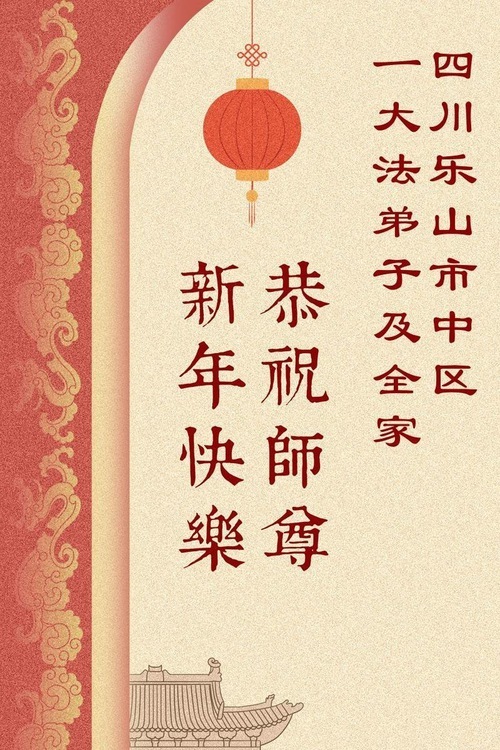 四川乐山市中区
一大法弟子及全家
恭祝師尊
新年快樂